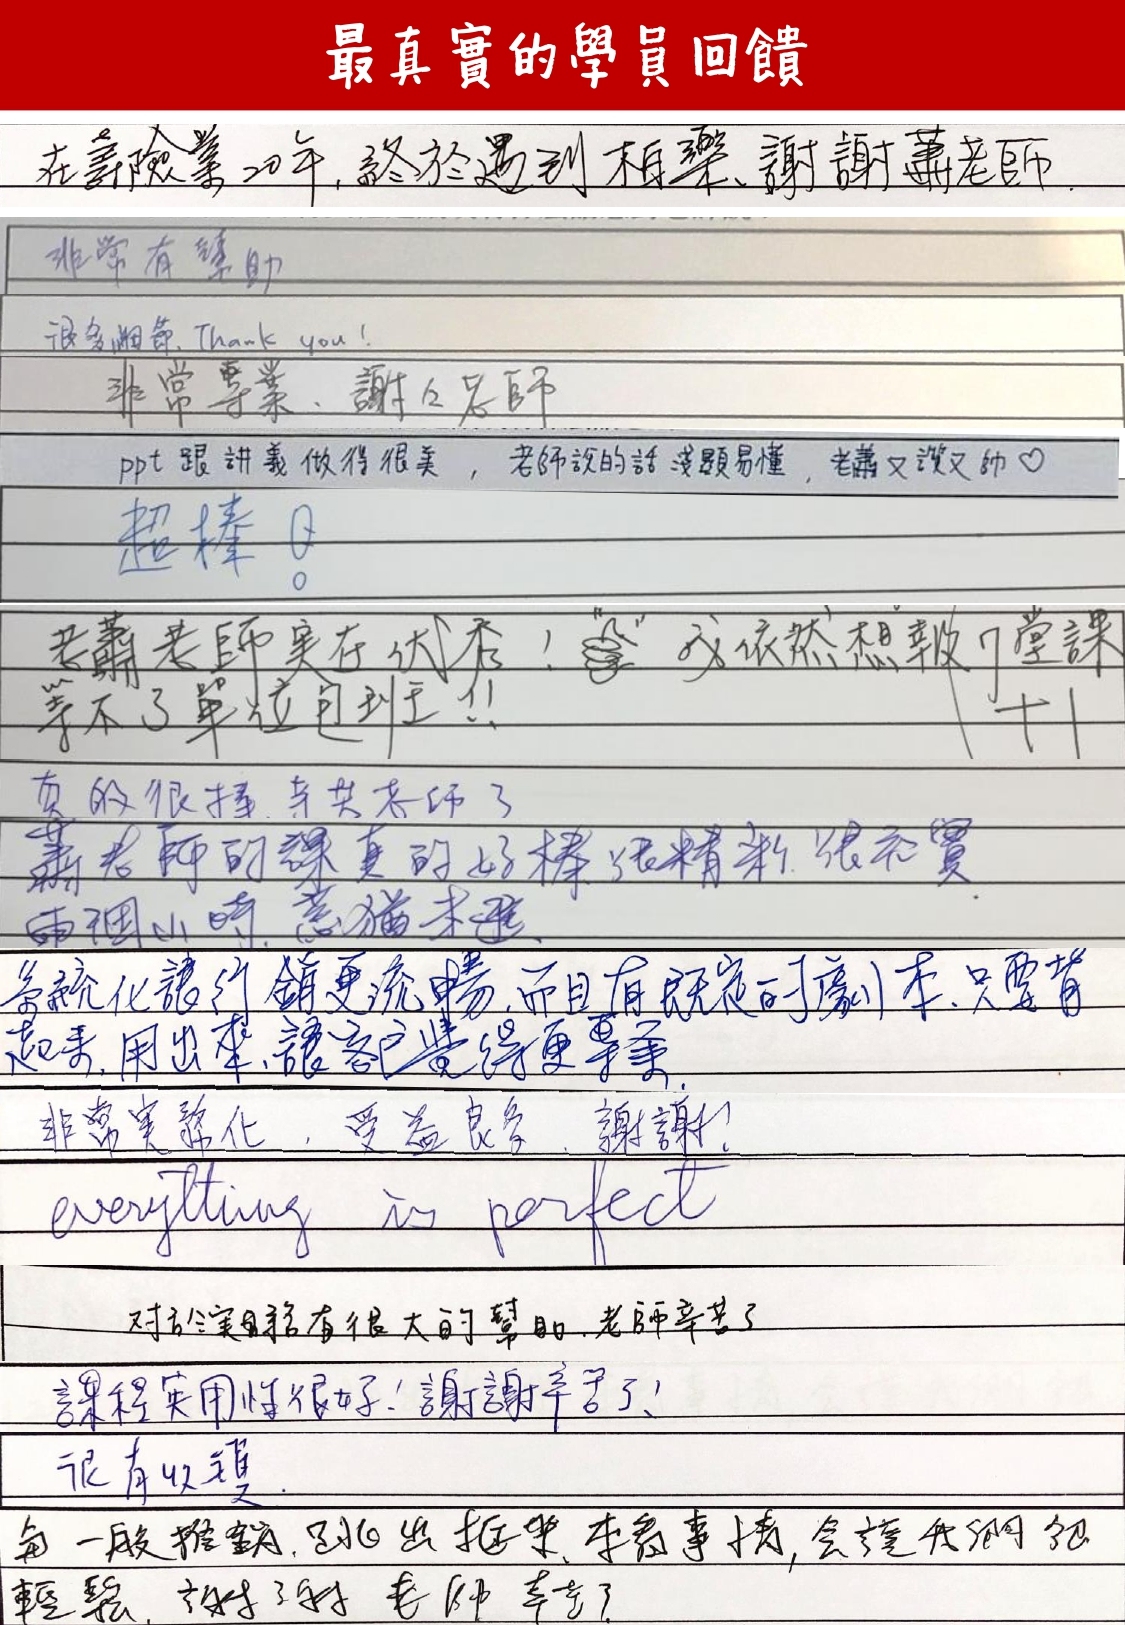 最真實的學員回饋
在壽險業20年,終於遇到伯樂、謝謝蕭老師.
非常有幫助
很多細節. Thank you!
非常專業、謝々老師
ppt 跟講義做得很美,老師說的話淺顯易懂,老蕭又讚又帥♡
超棒!
老蕭老師実在优秀! 我依然想報7堂課
等不了單位包班至!! +1
真的很棒.辛苦老師了
蕭老師的課真的好棒 很精彩.很充實.
兩個小時.意猶未盡.
系統化讓行銷更流暢.而且有既定的劇本.只要背
起來.用出來、讓客戶覺得更專業.
非常実務化,受益良多.謝謝!
everything is perfect
对於演務有很大的幫助.老師辛苦了
課程実用性很好!謝謝辛苦了!
很有收穫.
一般推銷.跳出框架.來看事情,会讓我們
輕鬆.謝謝老師辛苦了